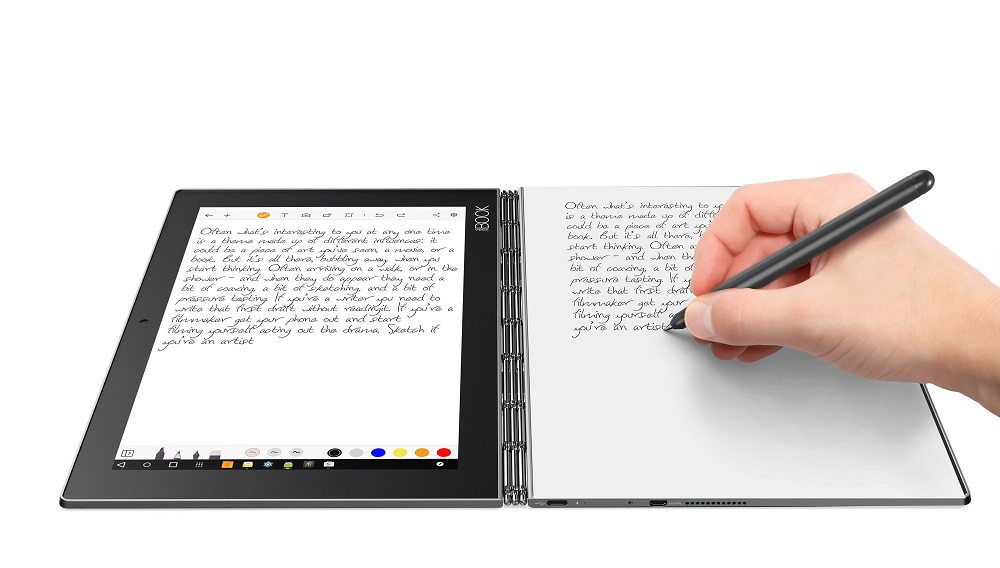 Often what's interesting to you at any one time
is a theme made up of different influences: it
could be a piece of art you've seen, a movie, or a
book. But it's all there, bubbling away, when you
start thinking. Often arriving on a walk, or in the
shower – and when they do appear they need a
bit of coaxing, a bit of sketching, and a bit of
pressure testing. If you're a writer you need to
write that first draft without readingit. If you're a
filmmaker get your phone out and start
filming yourself acting out the drama. Sketch if
you're an artist
YOGA BOOK
Often what's interesting to yo
is a theme made up of differ
could be a piece of art yo
book. But it's all there, b
start thinking. Often a
shower – and when th
bit of coaxing, a bit of
pressure testing. If yo
write that first draf
filmmaker get your
filming yourself a
you're an artist